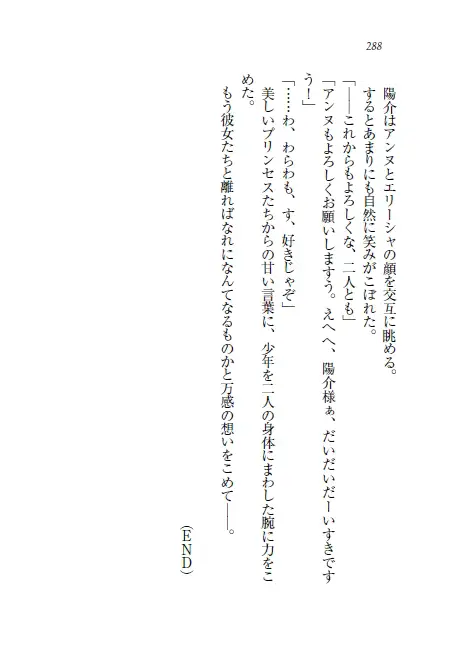 288
陽介はアンヌとエリーシャの顔を交互に眺める。
するとあまりにも自然に笑みがこぼれた。
「――これからもよろしくな、二人とも」
「アンヌもよろしくお願いしますう。えへへ、陽介様ぁ、だいだいだーいすきです
う！」
「……わ、わらわも、す、好きじゃぞ」
美しいプリンセスたちからの甘い言葉に、少年を二人の身体にまわした腕に力をこ
めた。
もう彼女たちと離ればなれになんてなるものかと万感の想いをこめて――。
（ＥＮＤ）